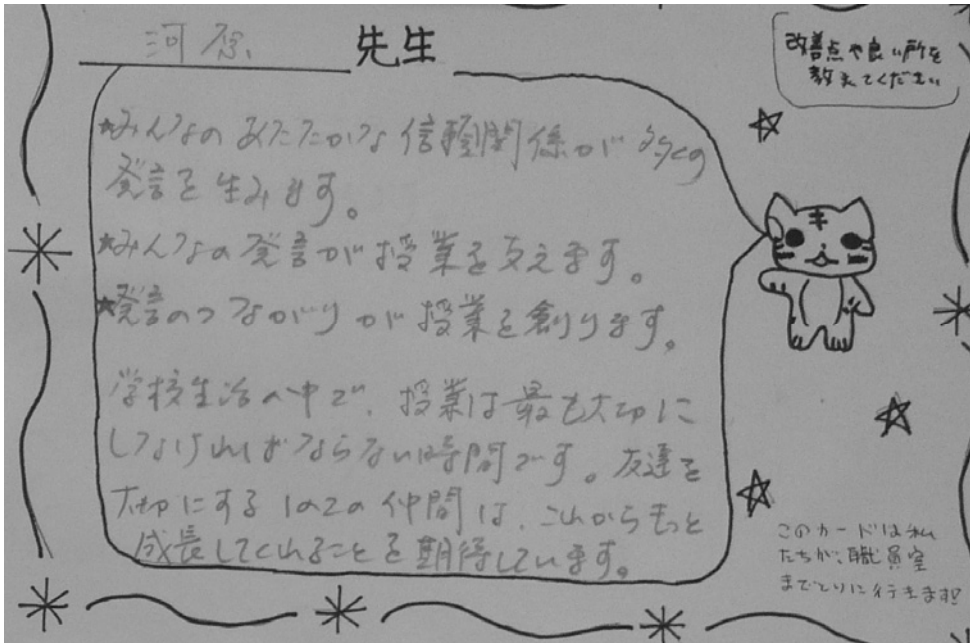 河原 先生
改善点や良い所を
教えてください
★みんなのあたたかな信頼関係が多くの
発言を生みます。
★みんなの発言が授業を支えます。
★発言のつながりが授業を創ります。
学校生活の中で、授業は最も大切に
しなければならない時間です。友達を
大切にする1の2の仲間は、これからもっと
成長してくれることを期待しています。
このカードは私
たちが、職員室
までとりに行きます!